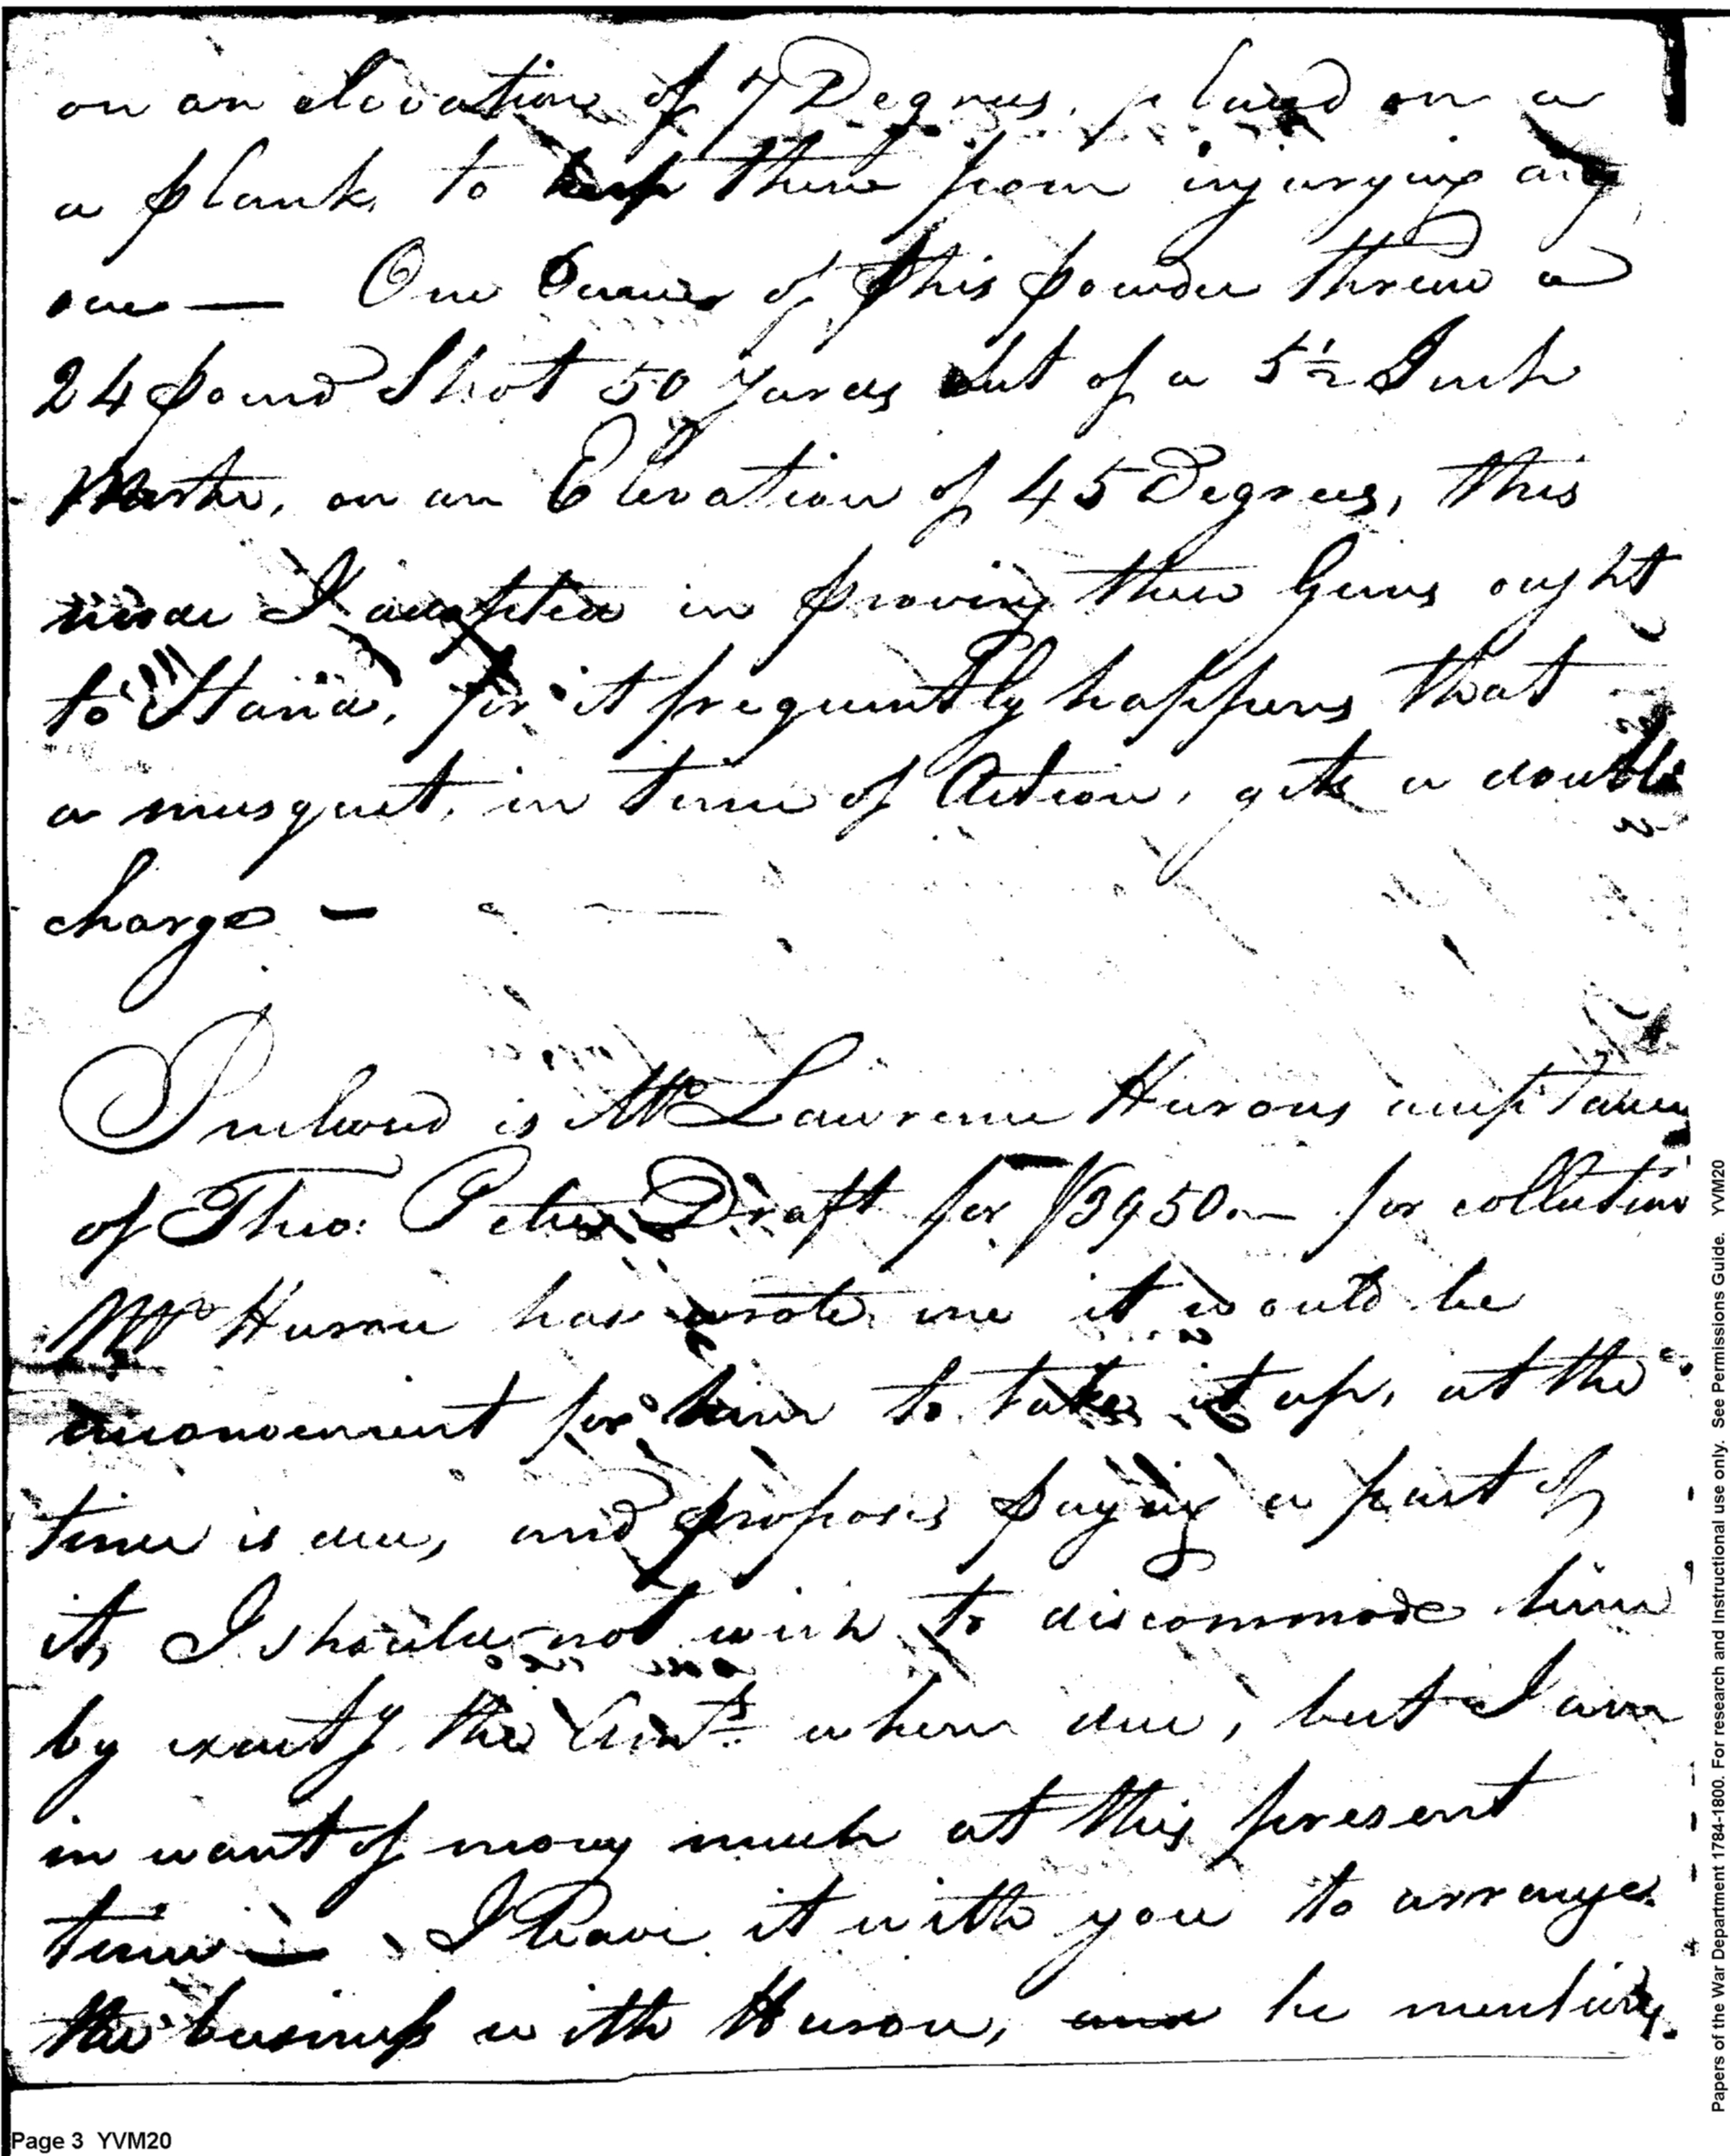 on an elevation of 7 Degrees, placed on a
a plank, to keep them from injurying any
one — One Ounce of this powder threw a
24 pound Shot 50 Yards Out of a 5½ Inch
Morter, on an Elevation of 45 Degrees, this
mode I adopted in proving these Guns ought
to Stand, for it frequently happens that
a musquet, in time of Action, gets a double
charge —
Inclosed is Mr Lawrence Hurons acceptance
of Theo: Peters Draft for $3950.— for collection
Mr Huron has wrote me it would be
inconvenient for him to take it up, at the
time is due, and proposes paying a part of
it, I should not wish to discommode him
by exactg the Amts when due, but I am
in want of mony much at this present
time — I leave it with you to arrange
the business with Huron, and he mentions
Page 3 YVM20
Papers of the War Department 1784-1800. For research and Instructional use only. See Permissions Guide. YVM20